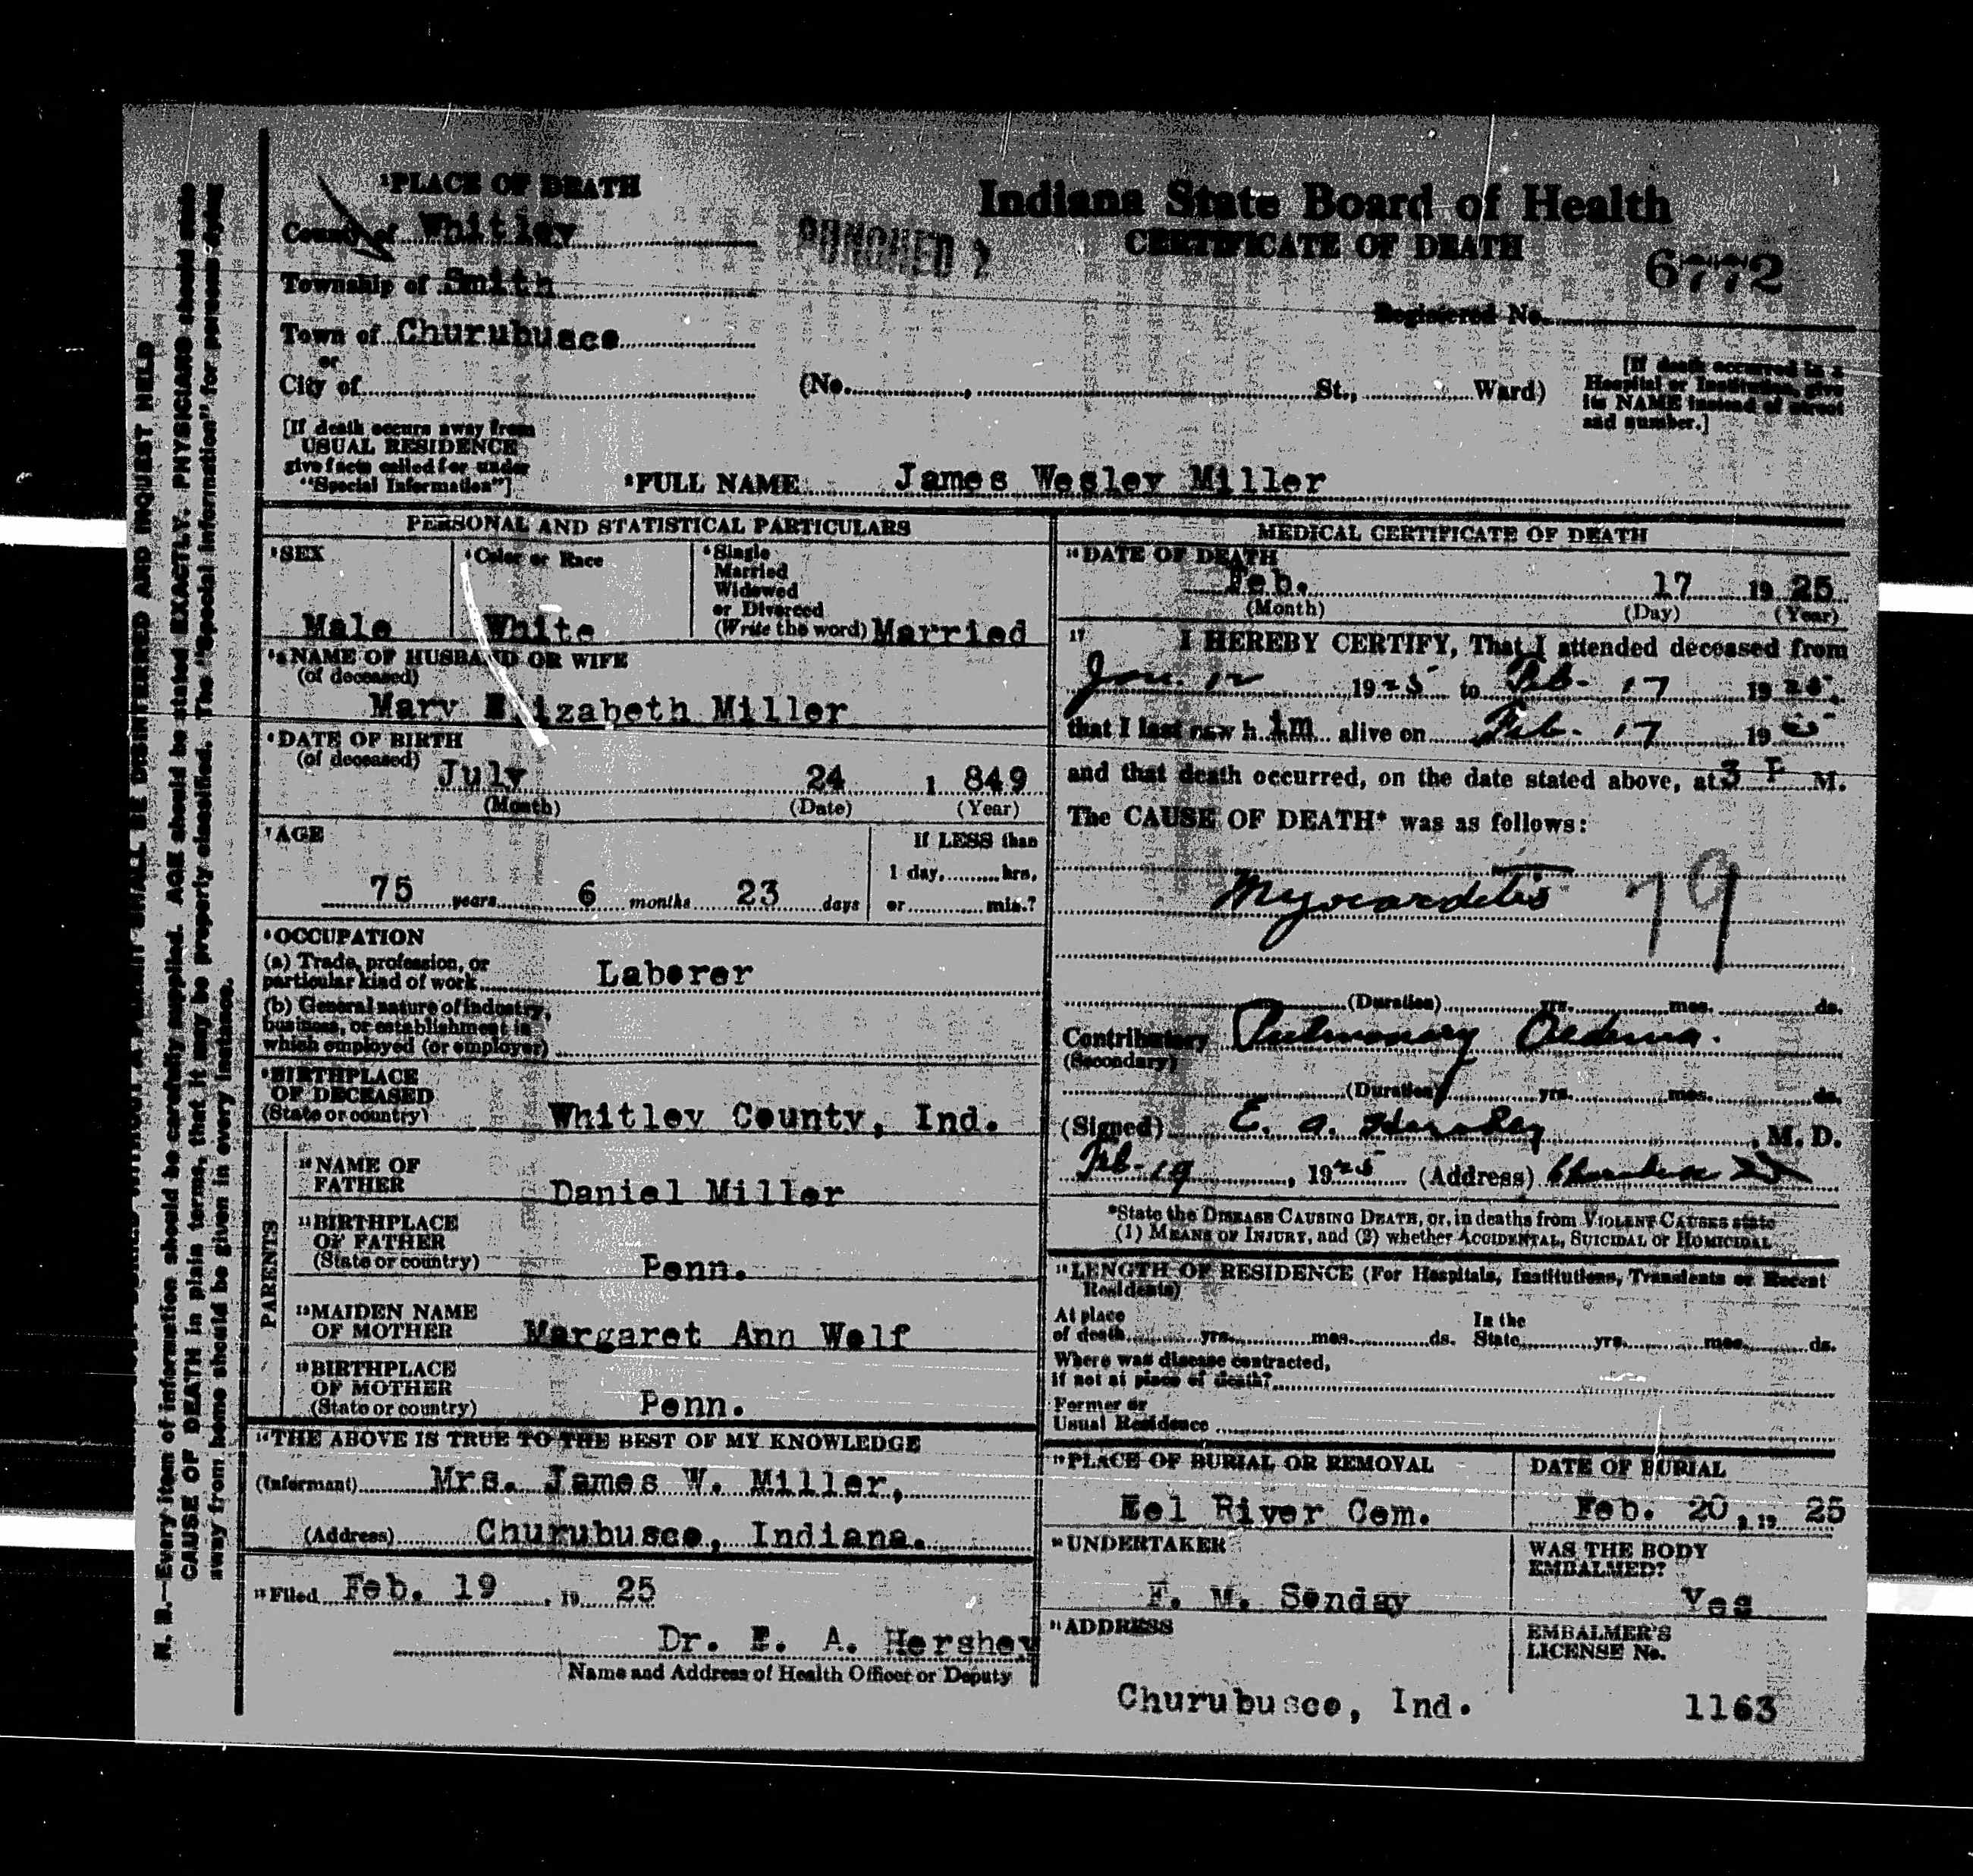 ¹PLACE OF DEATH
County of Whitley
Township of Smith
Town of Churubusco
or
City of
(No. , St., Ward)
PUNCHED
Indiana State Board of Health
CERTIFICATE OF DEATH
6772
Registered No.
[If death occurred in a
Hospital or Institution, give
its NAME instead of street
and number.]
[If death occurs away from
USUAL RESIDENCE
give facts called for under
"Special Information"]
²FULL NAME James Wesley Miller
PERSONAL AND STATISTICAL PARTICULARS
³SEX
Male
⁴Color or Race
White
⁵Single
Married
Widowed
or Divorced
(Write the word) Married
NAME OF HUSBAND OR WIFE
(of deceased)
Mary Elizabeth Miller
⁶DATE OF BIRTH
(of deceased)
July 24 1 849
(Month) (Date) (Year)
⁷AGE
75 years 6 months 23 days
If LESS than
1 day, hrs,
or min.?
⁸OCCUPATION
(a) Trade, profession, or
particular kind of work Laborer
(b) General nature of industry,
business, or establishment in
which employed (or employer)
⁹BIRTHPLACE
OF DECEASED
(State or country) Whitley County, Ind.
PARENTS
¹⁰NAME OF
FATHER Daniel Miller
¹¹BIRTHPLACE
OF FATHER
(State or country) Penn.
¹²MAIDEN NAME
OF MOTHER Margaret Ann Wolf
¹³BIRTHPLACE
OF MOTHER
(State or country) Penn.
¹⁴THE ABOVE IS TRUE TO THE BEST OF MY KNOWLEDGE
(Informant) Mrs. James W. Miller,
(Address) Churubusco, Indiana.
¹⁵Filed Feb. 19, 19 25
Dr. E. A. Hershey
Name and Address of Health Officer or Deputy
MEDICAL CERTIFICATE OF DEATH
¹⁶DATE OF DEATH
Feb. 17 19 25
(Month) (Day) (Year)
¹⁷ I HEREBY CERTIFY, That I attended deceased from
Jan. 12 1925 to Feb. 17 1925,
that I last saw him alive on Feb. 17 19
and that death occurred, on the date stated above, at 3 P M.
The CAUSE OF DEATH* was as follows:
Myocarditis 79
(Duration) yrs. mos. ds.
Contributory Pulmonary Oedema.
(Secondary)
(Duration) yrs. mos. ds.
(Signed) E. A. Hershey, M. D.
Feb. 19, 1925 (Address) Churubusco
*State the DISEASE CAUSING DEATH, or, in deaths from VIOLENT CAUSES state
(1) MEANS OF INJURY, and (2) whether ACCIDENTAL, SUICIDAL or HOMICIDAL
¹⁸LENGTH OF RESIDENCE (For Hospitals, Institutions, Transients or Recent
Residents)
At place
of death yrs. mos. ds.
In the
State yrs. mos. ds.
Where was disease contracted,
if not at place of death?
Former or
Usual Residence
¹⁹PLACE OF BURIAL OR REMOVAL
Eel River Cem.
DATE OF BURIAL
Feb. 20, 19 25
²⁰UNDERTAKER
F. M. Sonday
WAS THE BODY
EMBALMED?
Yes
²¹ADDRESS
Churubusco, Ind.
EMBALMER'S
LICENSE No.
1163
AND INQUEST HELD
N. B.—Every item of information should be carefully supplied. AGE should be stated EXACTLY. PHYSICIANS should state
CAUSE OF DEATH in plain terms, that it may be properly classified. The "Special Information" for persons dying
away from home should be given in every instance.